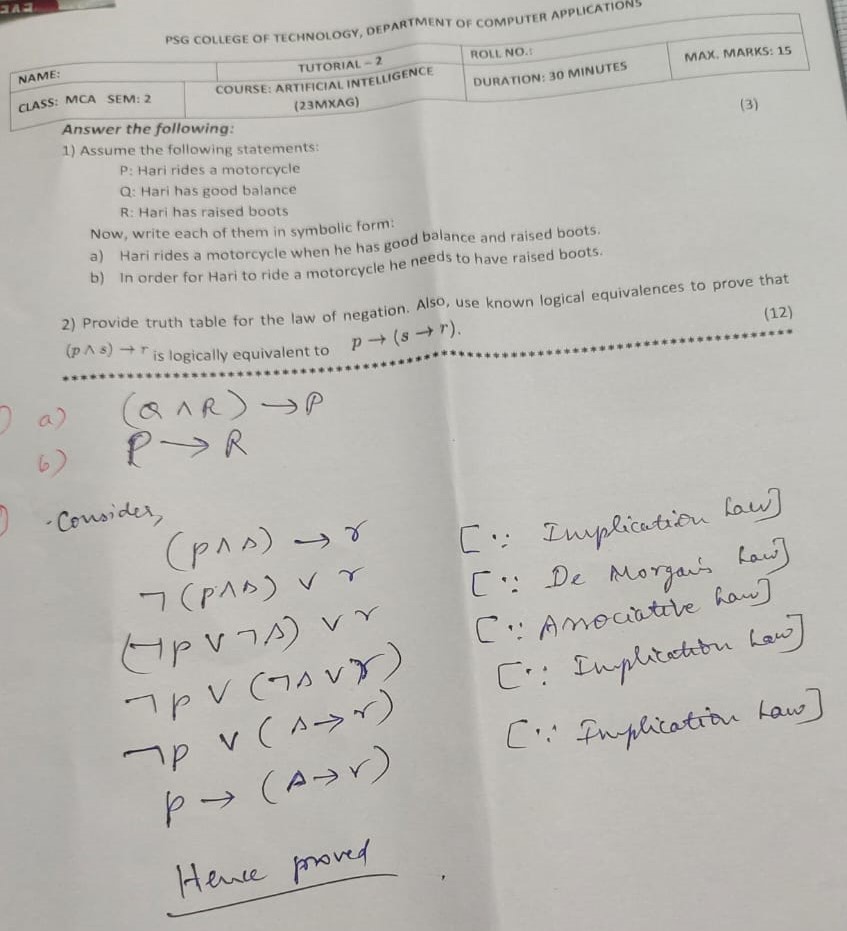 PSG COLLEGE OF TECHNOLOGY, DEPARTMENT OF COMPUTER APPLICATIONS
NAME:
TUTORIAL – 2
ROLL NO.:
MAX. MARKS: 15
CLASS: MCA SEM: 2
COURSE: ARTIFICIAL INTELLIGENCE
(23MXAG)
DURATION: 30 MINUTES
Answer the following:
(3)
1) Assume the following statements:
P: Hari rides a motorcycle
Q: Hari has good balance
R: Hari has raised boots
Now, write each of them in symbolic form:
a) Hari rides a motorcycle when he has good balance and raised boots.
b) In order for Hari to ride a motorcycle he needs to have raised boots.
2) Provide truth table for the law of negation. Also, use known logical equivalences to prove that
(p ∧ s) → r is logically equivalent to p → (s → r).
(12)
************************************************************
a) (Q ∧ R) → P
b) P → R
Consider,
(p ∧ s) → r [∵ Implication Law]
¬(p ∧ s) ∨ r [∵ De Morgan's Law]
(¬p ∨ ¬s) ∨ r [∵ Associative Law]
¬p ∨ (¬s ∨ r) [∵ Implication Law]
¬p ∨ (s → r) [∵ Implication Law]
p → (s → r)
Hence proved